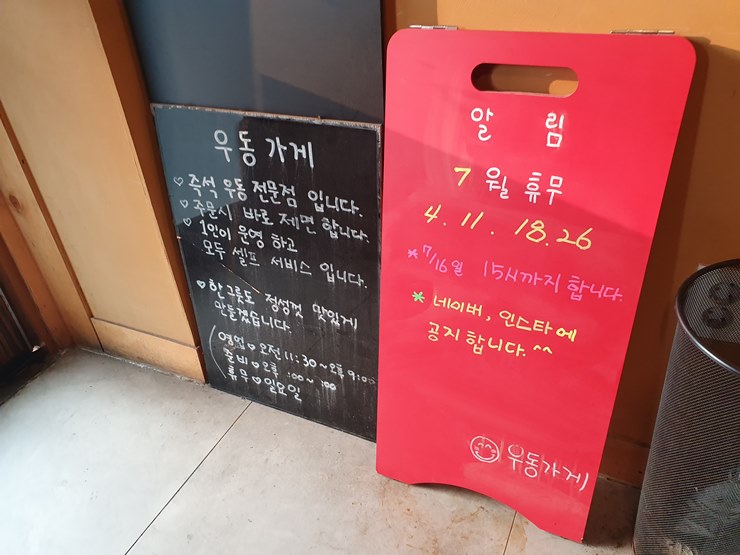 우동가게
♡ 즉석 우동 전문점 입니다.
♡ 주문시 바로 제면 합니다.
♡ 1인이 운영 하고
모두 셀프 서비스 입니다.
♡ 한그릇도 정성껏 맛있게
만들겠습니다.
영업♡오전11:30~오후9:00
준비♡오후 :00~ :00
휴무♡일요일
알 림
7 월 휴무
4. 11. 18. 26
*7/16일 15시까지 합니다.
* 네이버, 인스타에
공지합니다. ^^
우동가게